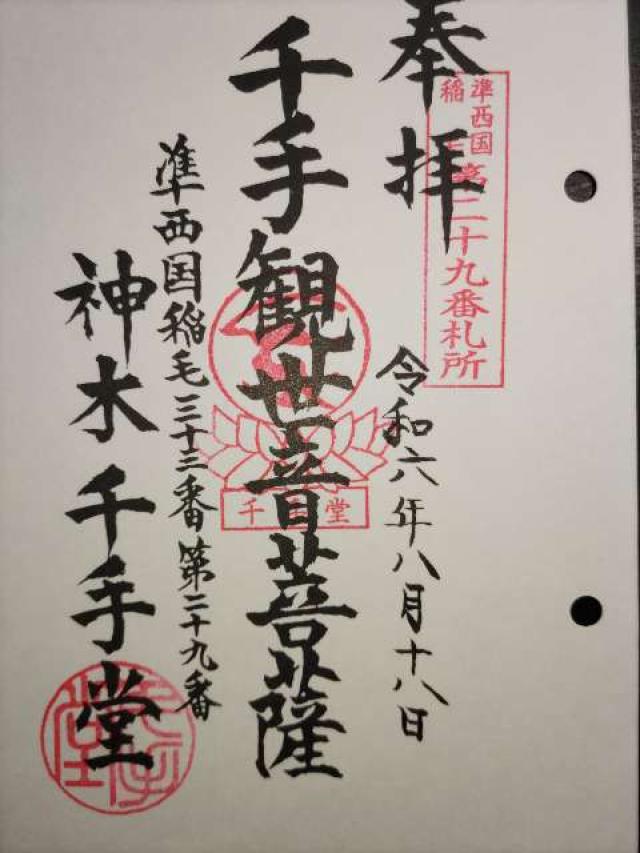 奉拝
準西国
稲毛
第二十九番札所
令和六年八月十八日
千手観世音菩薩
千手堂
準西国稲毛三十三番第二十九番
神木千手堂